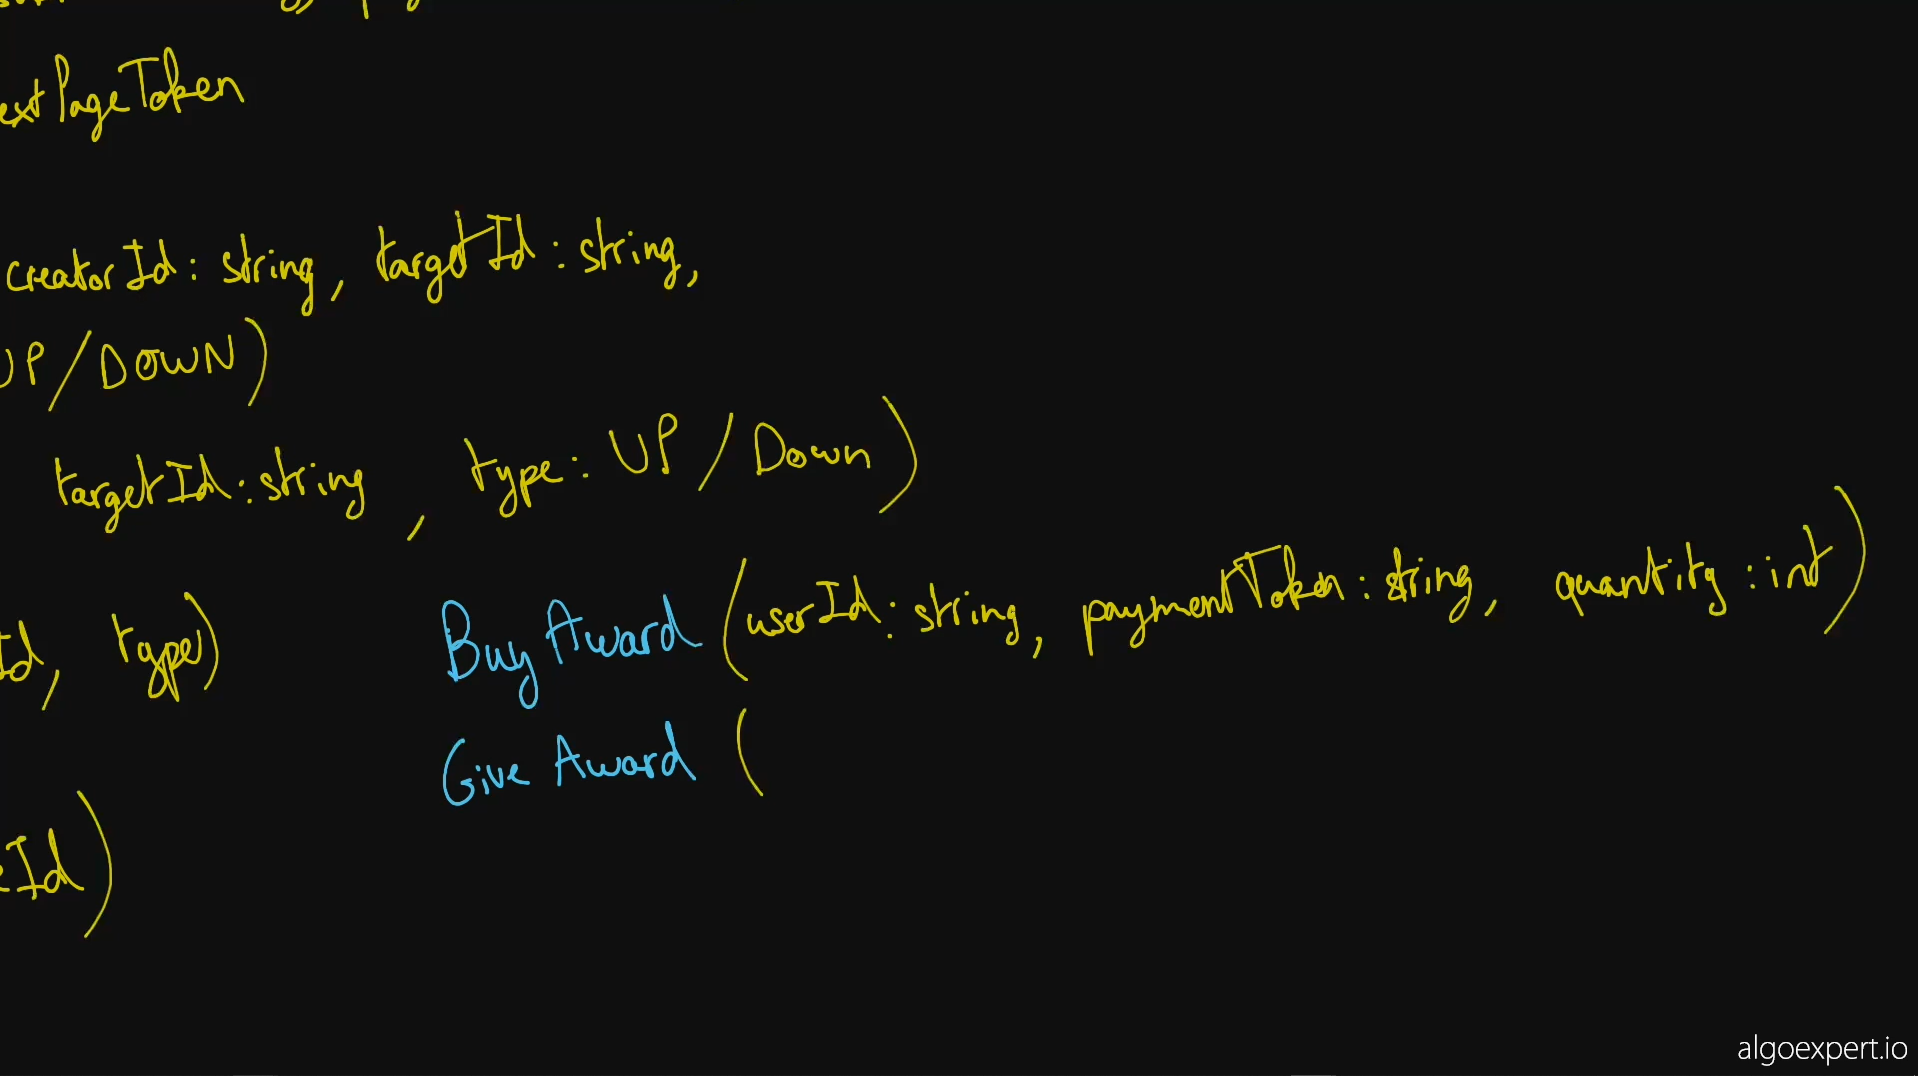 extPageToken
creatorId: string, targetId: string,
UP/DOWN)
targetId: string, type: UP/Down)
BuyAward (userId: string, paymentToken: string, quantity: int)
Id, type)
Give Award (
eId)
algoexpert.io